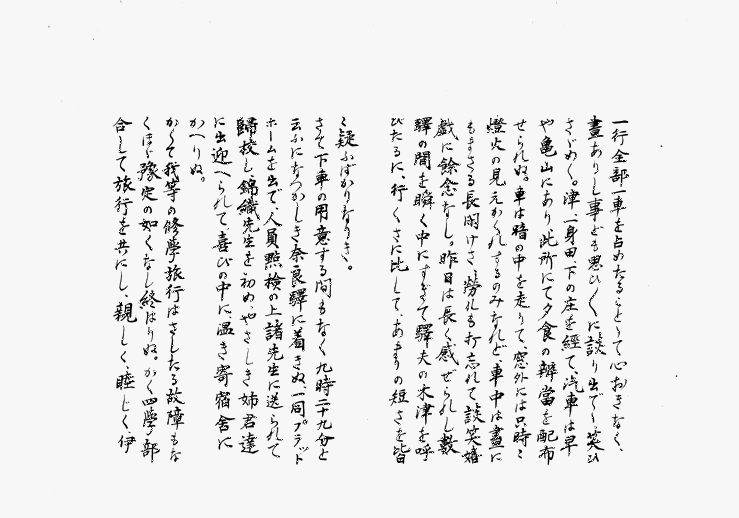 一行全部一車を占めたることとて心おきなく、
晝ありし事ども思ひ〳〵に談り出でゝ、笑ひ
さゞめく。津、一身田、下の庄を經て、汽車は早
や亀山にあり此所にて夕食の辨當を配布
せられぬ。車は暗の中を走りて、窓外には只時々
燈火の見えかくれするのみなれど、車中は晝に
もまさる長閑けさ、勞れも打忘れて談笑嬉
戯に餘念なし。昨日は長く感ぜられし數
驛の間を瞬く中にすぎて驛夫の木津を呼
びたるに、行くさに比して、あまりの短さを皆
々疑ふばかりなりき。
さて下車の用意する間もなく九時二十九分と
云ふになつかしき奈良驛に着きぬ、一同プラット
ホームを出で、人員點檢の上諸先生に送られて
歸校し、錦織先生を初め、やさしき姉君達
に出迎へられて、喜びの中に、温き寄宿舎に
かへりぬ。
かくて我等の修學旅行はさしたる故障もな
くほゞ豫定の如くなし終はりぬ。かく四學部
合して旅行を共にし、親しく、睦じく、伊